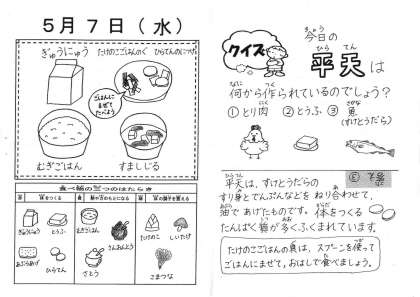 5月7日(水)
ぎゅうにゅう
たけのこごはんのぐ
ひらてんのにつけ
ごはんにまぜてたべよう
むぎごはん
すましじる
食べ物の三つのはたらき
体をつくる
ぎゅうにゅう
とうふ
むぎごはん
たけのこ
しいたけ
あぶらあげ
ひらてん
さとう
こまつな
クイズ
きょう
今日の
ひら てん
平天は
なに つく
何から作られているのでしょう?
①とり肉 ②とうふ ③魚
(すけとうだら)
ひらてん
平天は、すけとうだらの
すり身とでんぷんなどを ねり合わせて、
油で あげたものです。体をつくる
たんぱく質が多くふくまれています。
たけのこごはんの具は、スプーンを使って
ごはんにまぜて、おはしで食べましょう。